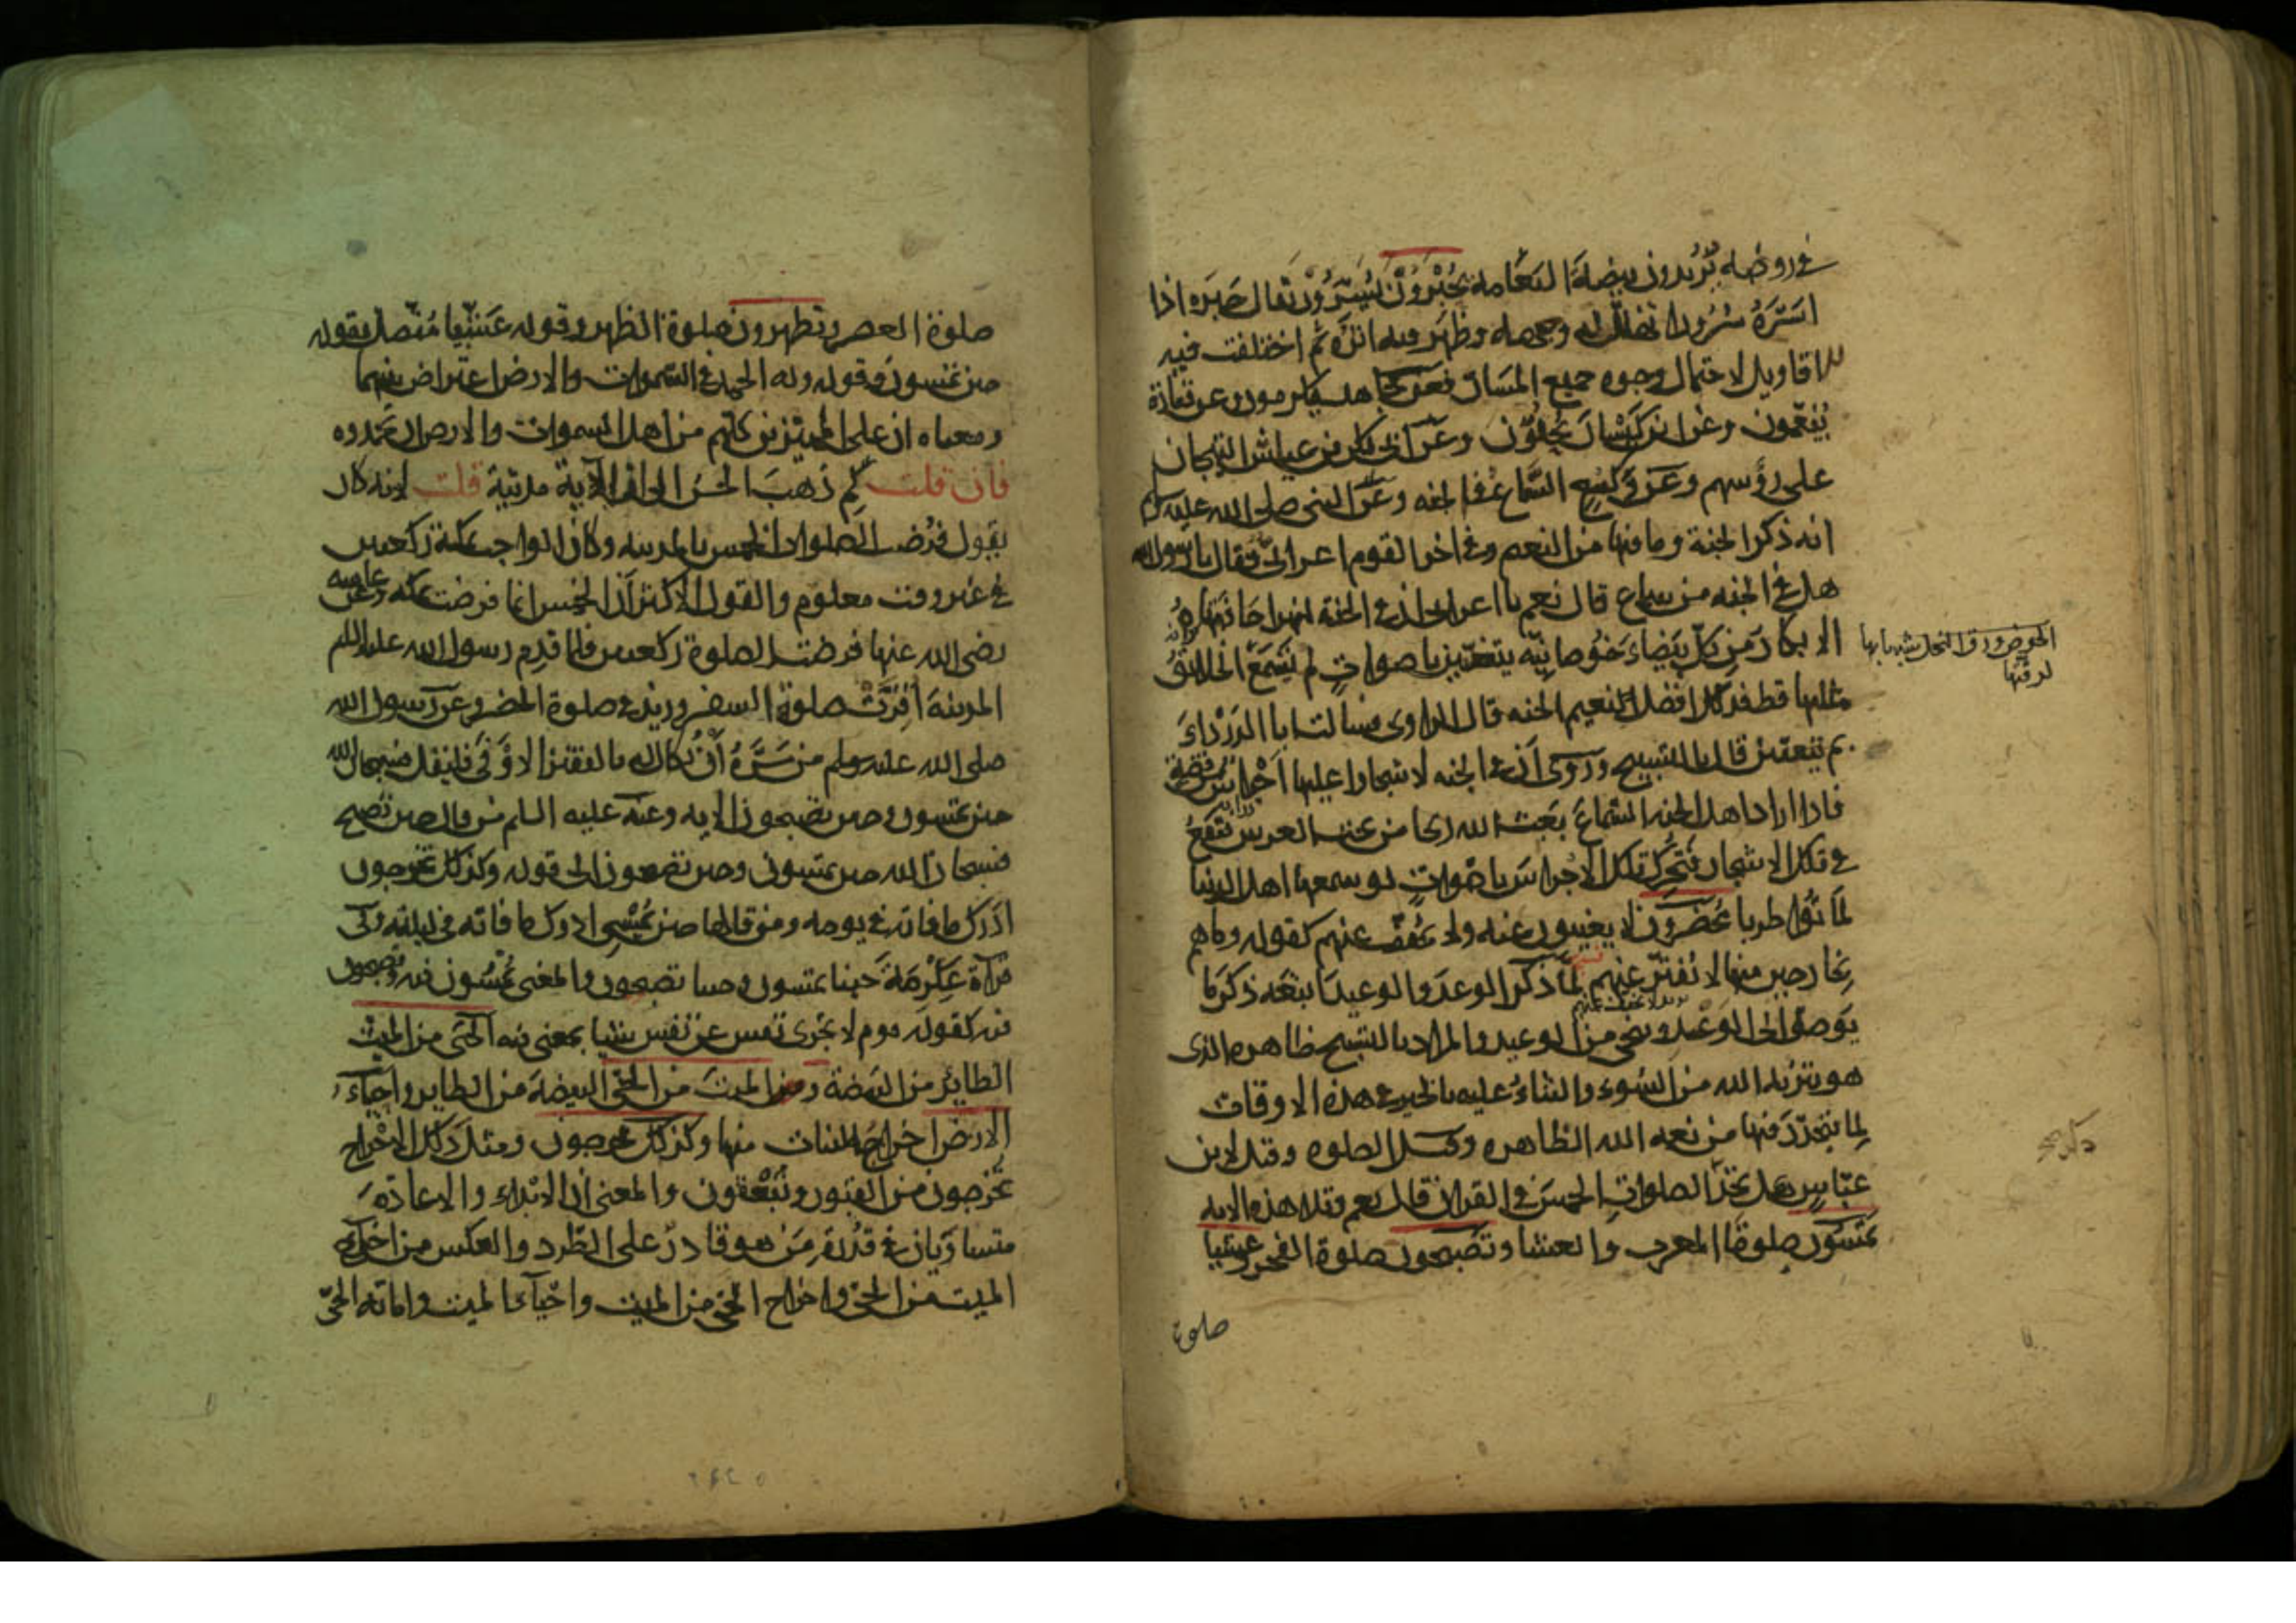 في روضه يريدون بيضة النعامة يُحْبَرُونَ يُسَرُّون يقال حَبَرَه اذا
اسَرَّهُ سُرُورا تهلل له وجهه وظهر فيه اثره ثم اختلفت فيه
الاقاويل لاحتمال وجوه جميع المسار فعن مجاهد يكرمون وعن قتادة
يُنَعَّمون وعن ابن كَيْسَانَ يُحَلَّوْن وعن ابى بكر بن عياش التيجان
على رؤسهم وعن وكيع السَّماعُ في الجنه وعن النبى صلى الله عليه
انه ذكر الجنة وما فيها من النعيم وفي اخر القوم اعرابىّ فقال يا رسول الله
هل في الجنه من سماع قال نعم يا اعرابى ان في الجنة لنهرا حافتاه
الابكار مِن كلّ بَيْضاءَ خُوصانِيّه يتغنّين باصواتٍ لم يَسْمَع الخلائقُ
الخوص ورق النخل شبه بها
لدقتها
مثلها قط فذلك افضل نعيم الجنه قال الراوى فسالت ابا الدَرْدَاءَ
بم يتغنّين قال بالتسبيح وروى ان في الجنه لاشجارا عليها اجراس من فضة
فاذا اراد اهل الجنه السَّماعَ بعث الله ريحا من تحت العرش فتَقَعُ
في تلك الاشجار فتُحَرِّكُ تلك الاجراسَ باصْواتٍ لو سمعها اهل الدنيا
لماتوا طربا مُحْضَرُون لا يغيبون عنه ولا يخفف عنهم كقوله وما هم
بخارجين منها لا يُفتّر عنهم لمّا ذكر الوعدَ والوعيدَ اتبعَه ذكرَ ما
يوصل الى الوعد وينجى من الوعيد والمراد بالتسبيح ظاهره الذى
هو تنزيه الله من السُوء والثناءُ عليه بالخير في هذه الاوقات
لِما يتجدّد فيها من نعمه الله الظاهره وقيل الصلوه وقيل لابن
عبّاس هل تجد الصلواتِ الخمسَ في القران قال نعم وتلا هذه الايه
تُمْسُون صلوتا المغرب والعشا وتصبحون صلوة الفجر وعشيا
صلوة
صلوة العصر وتظهرون صلوة الظهر وقوله عَشِيّا مُتّصل بقوله
حين تمسون وقوله وله الحمد في السموات والارض اعتراض بينهما
ومعناه ان على المميّزين كلّهم من اهل السموات والارض ان يحمدوه
فان قلت لِم ذهبَ الحسن الى ان الآية مدنيّة قلت لانه كان
يقول فُرضت الصلوات الخمس بالمدينه وكان الواجب بمكة ركعتين
في غير وقت معلوم والقول الاكثر ان الخمس انما فرضت بمكه وعن عايشه
رضى الله عنها فرضت الصلوة ركعتين فلما قدِم رسول الله عليه السلم
المدينهَ اُقِرَّتْ صلوة السفر وزيد في صلوة الحضر وعن رسول الله
صلى الله عليه وسلم من سَرَّهُ أنْ يُكال له بالقفيز الاوْفَى فليقل فسبحان الله
حين تمسون وحين تصبحون الايه وعنه عليه السلم من قال حين تصبح
فسبحان الله حين تمسون وحين تصبحون الى قوله وكذلك تخرجون
ادرك ما فاته في يومه ومن قالها حين يُمْسِى ادرك ما فاته في ليلته وفى
قراءة عِكْرِمَةَ حينا تمسون وحينا تصبحون والمعنى تُمْسُون فيه وتصبحون
فيه كقوله يوم لا تجزى نفس عن نفس شيا بمعنى فيه الحَىّ من الميّت
الطائِرَ من البيضة ومخرج الميتَ من الحَىّ البيضةَ من الطاير واحياءُ
الارض اخراجُ النبات منها وكذلك تخرجون ومثلَ ذلك الاخْراج
تخرجون من القبور وتُبْعَثون والمعنى ان الابداء والاعادة
متساوِيان في قُدْرَة مَن هو قادرٌ على الطَّرد والعكس من اخراج
الميت من الحَىّ واخراج الحَىّ من الميت واحْياءَ الميت واماته الحَىّ